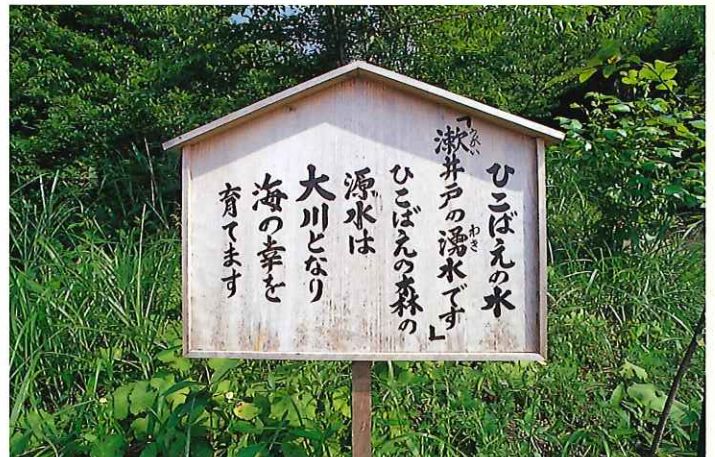 ひこばえの水
「漱井戸の湧水です」
ひこばえの森の
源水は
大川となり
海の幸を
育てます